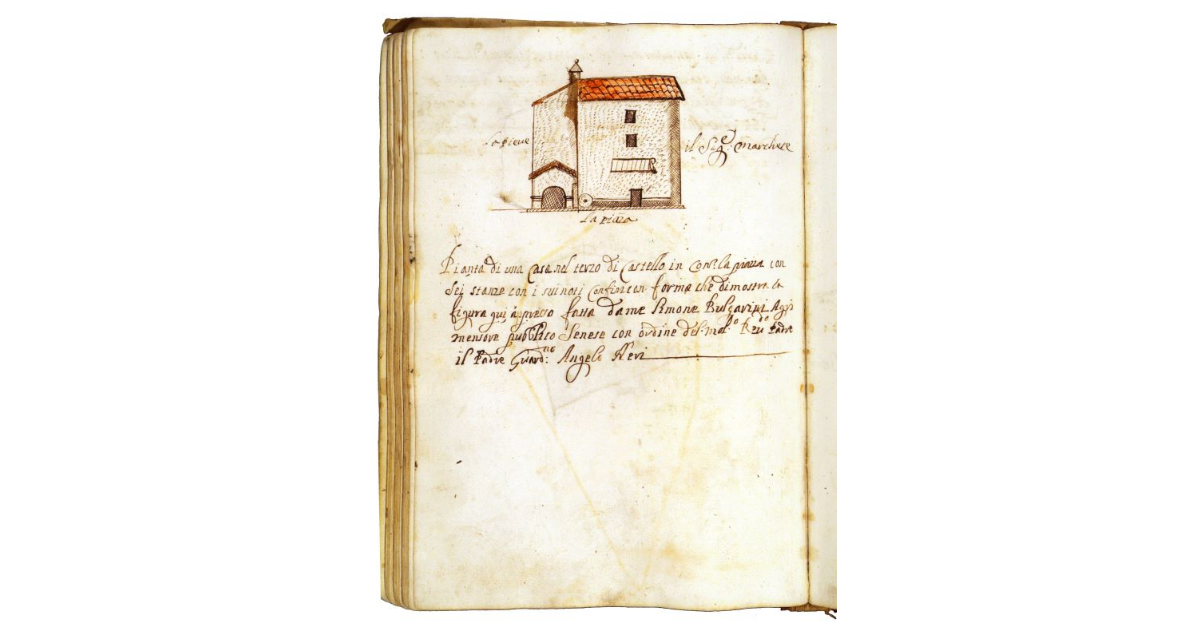 La Pieve
il Sig.e Marchese
La piaza
Pianta di una Casa nel terzo di Castello in Conf. la piazza con
sei stanze con i suinoti Confini con forma che dimostra la
figura qui apresso fatta da me Simone Bulgarini Agri
mensore pubblico Senese con ordine del mol.o Reu.do Padre
il Padre Guard.no Angelo Neri